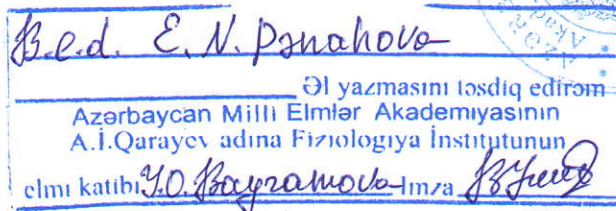 B.e.d. E. N. Pənahova
Əl yazmasını təsdiq edirəm
Azərbaycan Milli Elmlər Akademiyasının
A.İ.Qarayev adına Fiziologiya İnstitutunun
elmi katibi Y.O. Bayramova İmza